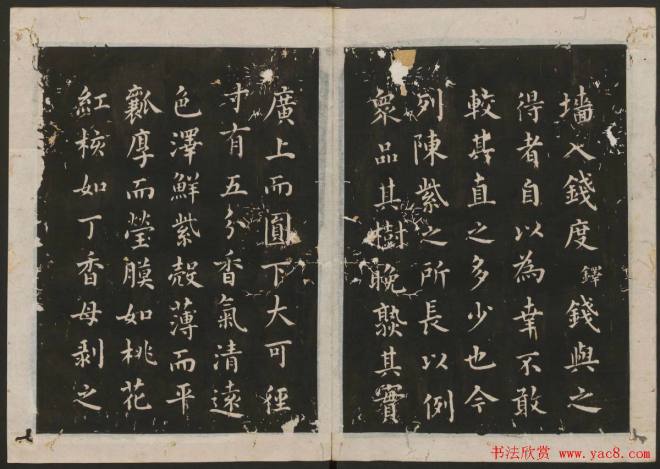 墻入錢度錢與之
鐸
得者自以為幸不敢
較其直之多少也今
列陳紫之所長以例
衆品其樹晚熟其實
廣上而圓下大可徑
寸有五分香氣清遠
色澤鮮紫殼薄而平
瓤厚而瑩膜如桃花
紅核如丁香母剥之
书法欣赏 www.yac8.com